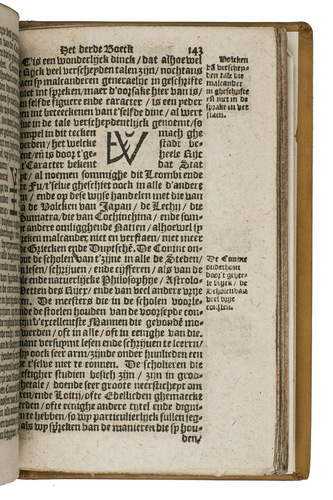 Het derde Boeck 143
T'is een wonderlijck dinck / dat alhoewel
Rijck veel verscheyden talen zijn / nochtans
en sy malcanderen generaelijc in geschrifte
niet int spreken / maer d'oorsake hier van is /
in selfde figuere ende caracter / is een yeder
en int beteeckenen van t'selfde dinc / al wert
tus in de tale verscheydentlijck genoemt / so
empel in dit teecken mach ghe
werden / het welcke stadt be-
ent / en is door t'ge- heele Rijc
t'Caracter bekent dat Stat
t / al noemen sommighe dit Leombi ende
re Fu / t'selve gheschiet oock in alle d'andere
n / ende op dese wijse handelen met die van
a de Volcken van Japan / de Lechij / die
Sumatra / die van Cochinchina / ende som-
e andere omligghende Natien / alhoewel sy
reken malcander niet en verstaen / niet meer
e Griecken ende Duytsche. De Coninc on-
nt de scholen van t'zijne in alle de Steden /
n lesen / schrijven / ende cijfferen / als van de
ende natuerlijcke Philosophye / Astrolo-
Wetten des Rijcx / ende van veel andere vrye
ten. De meesters die in de scholen voorle-
nde de stoelen houden van de voorseyde con-
zijn d'excellenste Mannen die gevonde mo-
werden / oft in alle / oft in eenighe van die.
ant versuymt lesen ende schrijven te leeren /
hy oock seer arm / zijnde onder hunlieden een
e t'selve niet te connen. De scholieren die
estigher studien besich zijn / zijn in groo-
hetale / doende seer groote neersticheyt om
ren / ende Loitij / ofte Edellieden ghemaeckt
erden / ofte eenighe andere tytel ende digni-
te hebben / so wy particulierlijck sullen seg-
als wy spreken van de manieren die sy hou-
den /
Volcken
die verscheyden
tale die
malcander
in gheschrifte
en niet in de
sprake en ver
staen.
De Coninc
onderhout
door t'geheele
Rijck / de
Scholen van
veel vrye
consten.